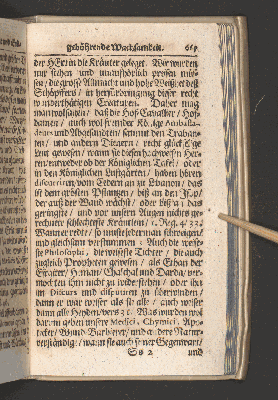 gebührende Wachsamkeit. 669
der HErr in die Kräuter geleget. Wir wurden
nur stehen und unauffhörlich preisen müs-
sen / die grosse Allmacht und hohe Weißheit deß
Schöpffers / in herfürbringung dieser recht
wunderthätigen Creaturen. Daher mag
man wol sagen / daß die Hof-Cavallier / Hof-
damen / auch wol fremder Könige Ambassa-
deurs und Abgesandten / sammt den Traban-
ten / und andern Dienern / recht glückselige
Leut gewesen / wann sie diesen hochweisen Her-
ren entweder ob der Königlichen Tafel / oder
in den Königlichen Lustgärten / haben hören
discurriren, vom Cedern an zu Libanon / das
ist dem grösten Pflantzen / biß an den Isop /
der auß der Wand wächst / oder biß an das
geringste / und vor unsern Augen nichts ge-
rechnete schlechtste Kräutlein / 1. Reg. 4. 33.
Wann er redt / so musste jederman schweigen /
und gleichsam verstummen. Auch die weise-
ste Philosophi, die weiseste Tichter / die auch
zugleich Propheten gewesen / als Ethan der
Esraiter / Heman / Chalchal und Darda / ver-
mochten ihm nicht zu widerstehen / oder ihn
im Discurs und disputiren zu überwinden /
dann er war weiser als sie alle / auch weiser
dann alle Heyden / vers 31. Was würden wol
darum geben unsere Medici, Chymici, Apo-
tecker / Wund-Barbierer / und andere Natur-
verständige / wann sie auch seiner Gegenwart /
Ss 2 und